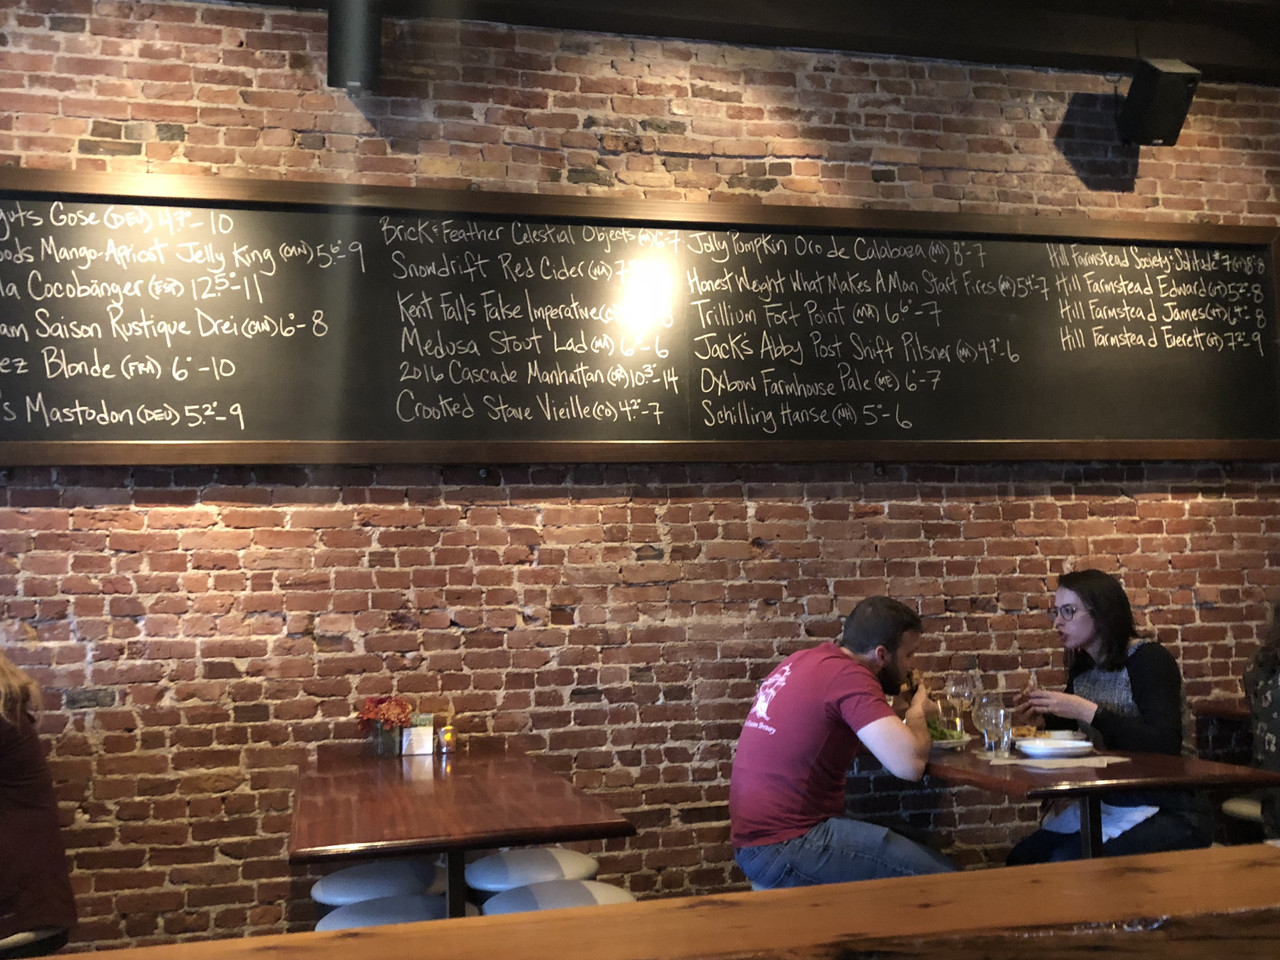 Gose (DEU) 4.7°-10
Mango-Apricot Jelly King (CAN) 5.6°-9
Cocobänger (EST) 12.5°-11
Saison Rustique Drei (CAN) 6°-8
Blonde (FRA) 6°-10
's Mastodon (DEU) 5.2°-9
Brick & Feather Celestial Objects (MA) 6°-7
Snowdrift Red Cider (WA)
Kent Falls False Imperative
Medusa Stout Lad (MA) 6°-6
2016 Cascade Manhattan (OR) 10.3°-14
Crooked Stave Vieille (CO) 4.2°-7
Jolly Pumpkin Oro de Calabaza (MI) 8°-7
Honest Weight What Makes A Man Start Fires (MA) 5.4°-7
Trillium Fort Point (MA) 6.6°-7
Jack's Abby Post Shift Pilsner (MA) 4.7°-6
Oxbow Farmhouse Pale (ME) 6°-7
Schilling Hanse (NH) 5°-6
Hill Farmstead Society & Solitude #7 (VT) 8°-8
Hill Farmstead Edward (VT) 5.2°-8
Hill Farmstead James (VT) 6.9°-8
Hill Farmstead Everett (VT) 7.2°-9
Brewery